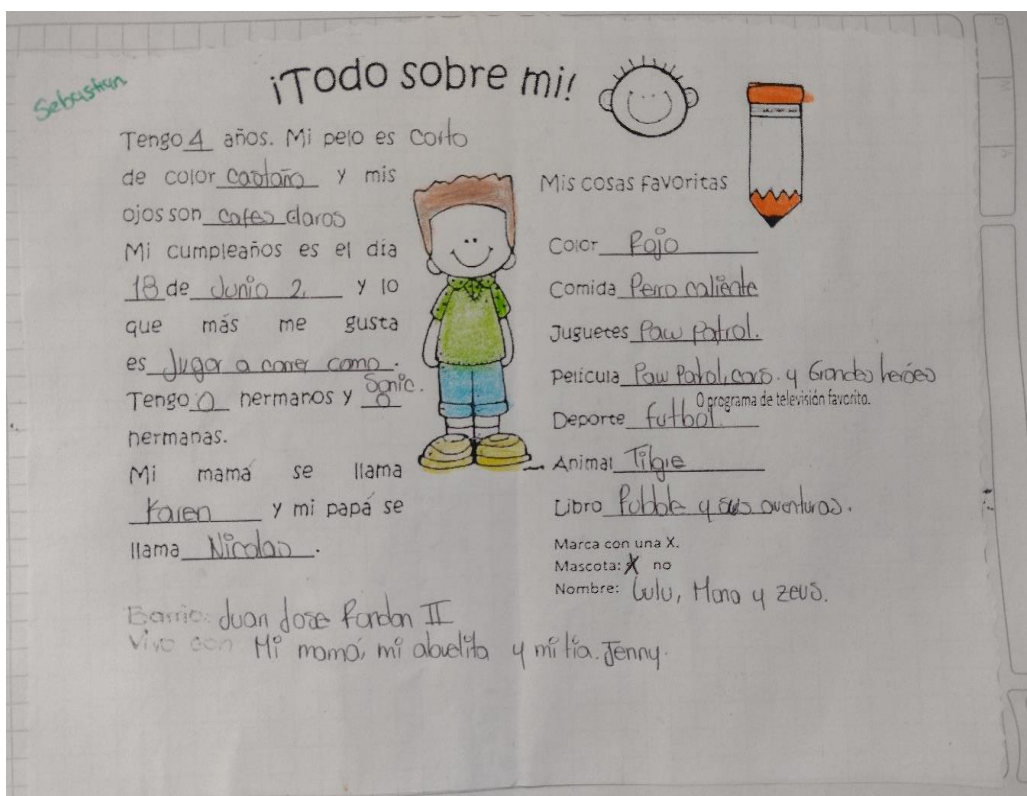 Sebastian
¡Todo sobre mi!
Tengo 4 años. Mi pelo es Corto
de color castaño y mis
ojos son cafes claros
Mi cumpleaños es el día
18 de Junio 2, y lo
que más me gusta
es Jugar a correr como.
Sonic.
Tengo 0 hermanos y 0
hermanas.
Mi mamá se llama
Karen y mi papá se
llama Nicolas.
Mis cosas favoritas
Color Rojo
Comida Perro caliente
Juguetes Paw Patrol.
Película Paw Patrol, cars. y Grandes heróes
O programa de televisión favorito.
Deporte futbol
Animal Tigre
Libro Pubble y sus aventuras.
Marca con una X.
Mascota: X no
Nombre: Lulu, Mona y zeus.
Barrio: Juan Jose Rondon II
Vivo con: Mi mamá, mi abuelita y mi tía. Jenny.